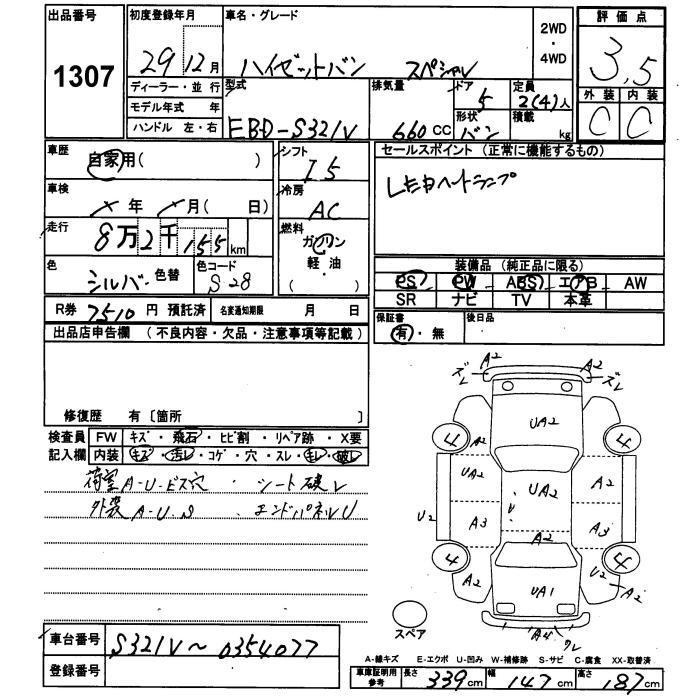 出品番号
1307
初度登録年月
29 12月
車名・グレード
ハイゼットバン スペシャル
2WD
・
4WD
評価点
3.5
外装 内装
C C
ディーラー・並行
モデル年式 年
ハンドル 左・右
型式
EBD-S321V
排気量
660 CC
ドア
5
形状
バン
定員
2(4)人
積載
kg
車歴
自家用( )
シフト
I5
車検
年 月( 日)
冷房
AC
走行
8万2千155km
燃料
ガソリン
軽・油
( )
色
シルバー 色替
色コード
S28
R券 7510円 預託済 名変通知期限 月 日
セールスポイント(正常に機能するもの)
LEDヘッドランプ
装備品(純正品に限る)
PS PW ABS エアB AW
SR ナビ TV 本革
保証書
有・無
後日品
出品店申告欄(不良内容・欠品・注意事項等記載)
修復歴 有〔箇所 〕
検査員 FW キズ・飛石・ヒビ割・リペア跡・X要
記入欄 内装 キズ・汚レ・コゲ・穴・スレ・キレ・破レ
荷室 A-U-ビス穴・シート破レ
外装 A-U-S・エンドパネルU
A2 A2
ズレ ズレ
UA2
4 4
A2
UA2 UA2 A2
U
U2 A3 A3
A2
4 4
A2 UA1 U2 A2
A4 ワレ
スペア
車台番号 S321V~0354077
登録番号
A-線キズ E-エクボ U-凹み W-補修跡 S-サビ C-腐食 XX-取替済
車庫証明用
参考
長さ 339cm 幅 147cm 高さ 187cm